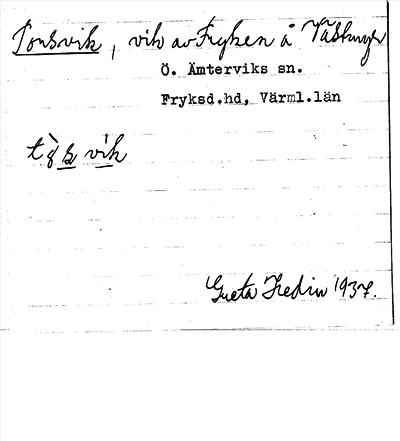 Torsvik, vik av Fryken å Västanvik
Ö. Ämterviks sn.
Fryksd.hd, Värml.län
vik
Greta Hedin 1937.